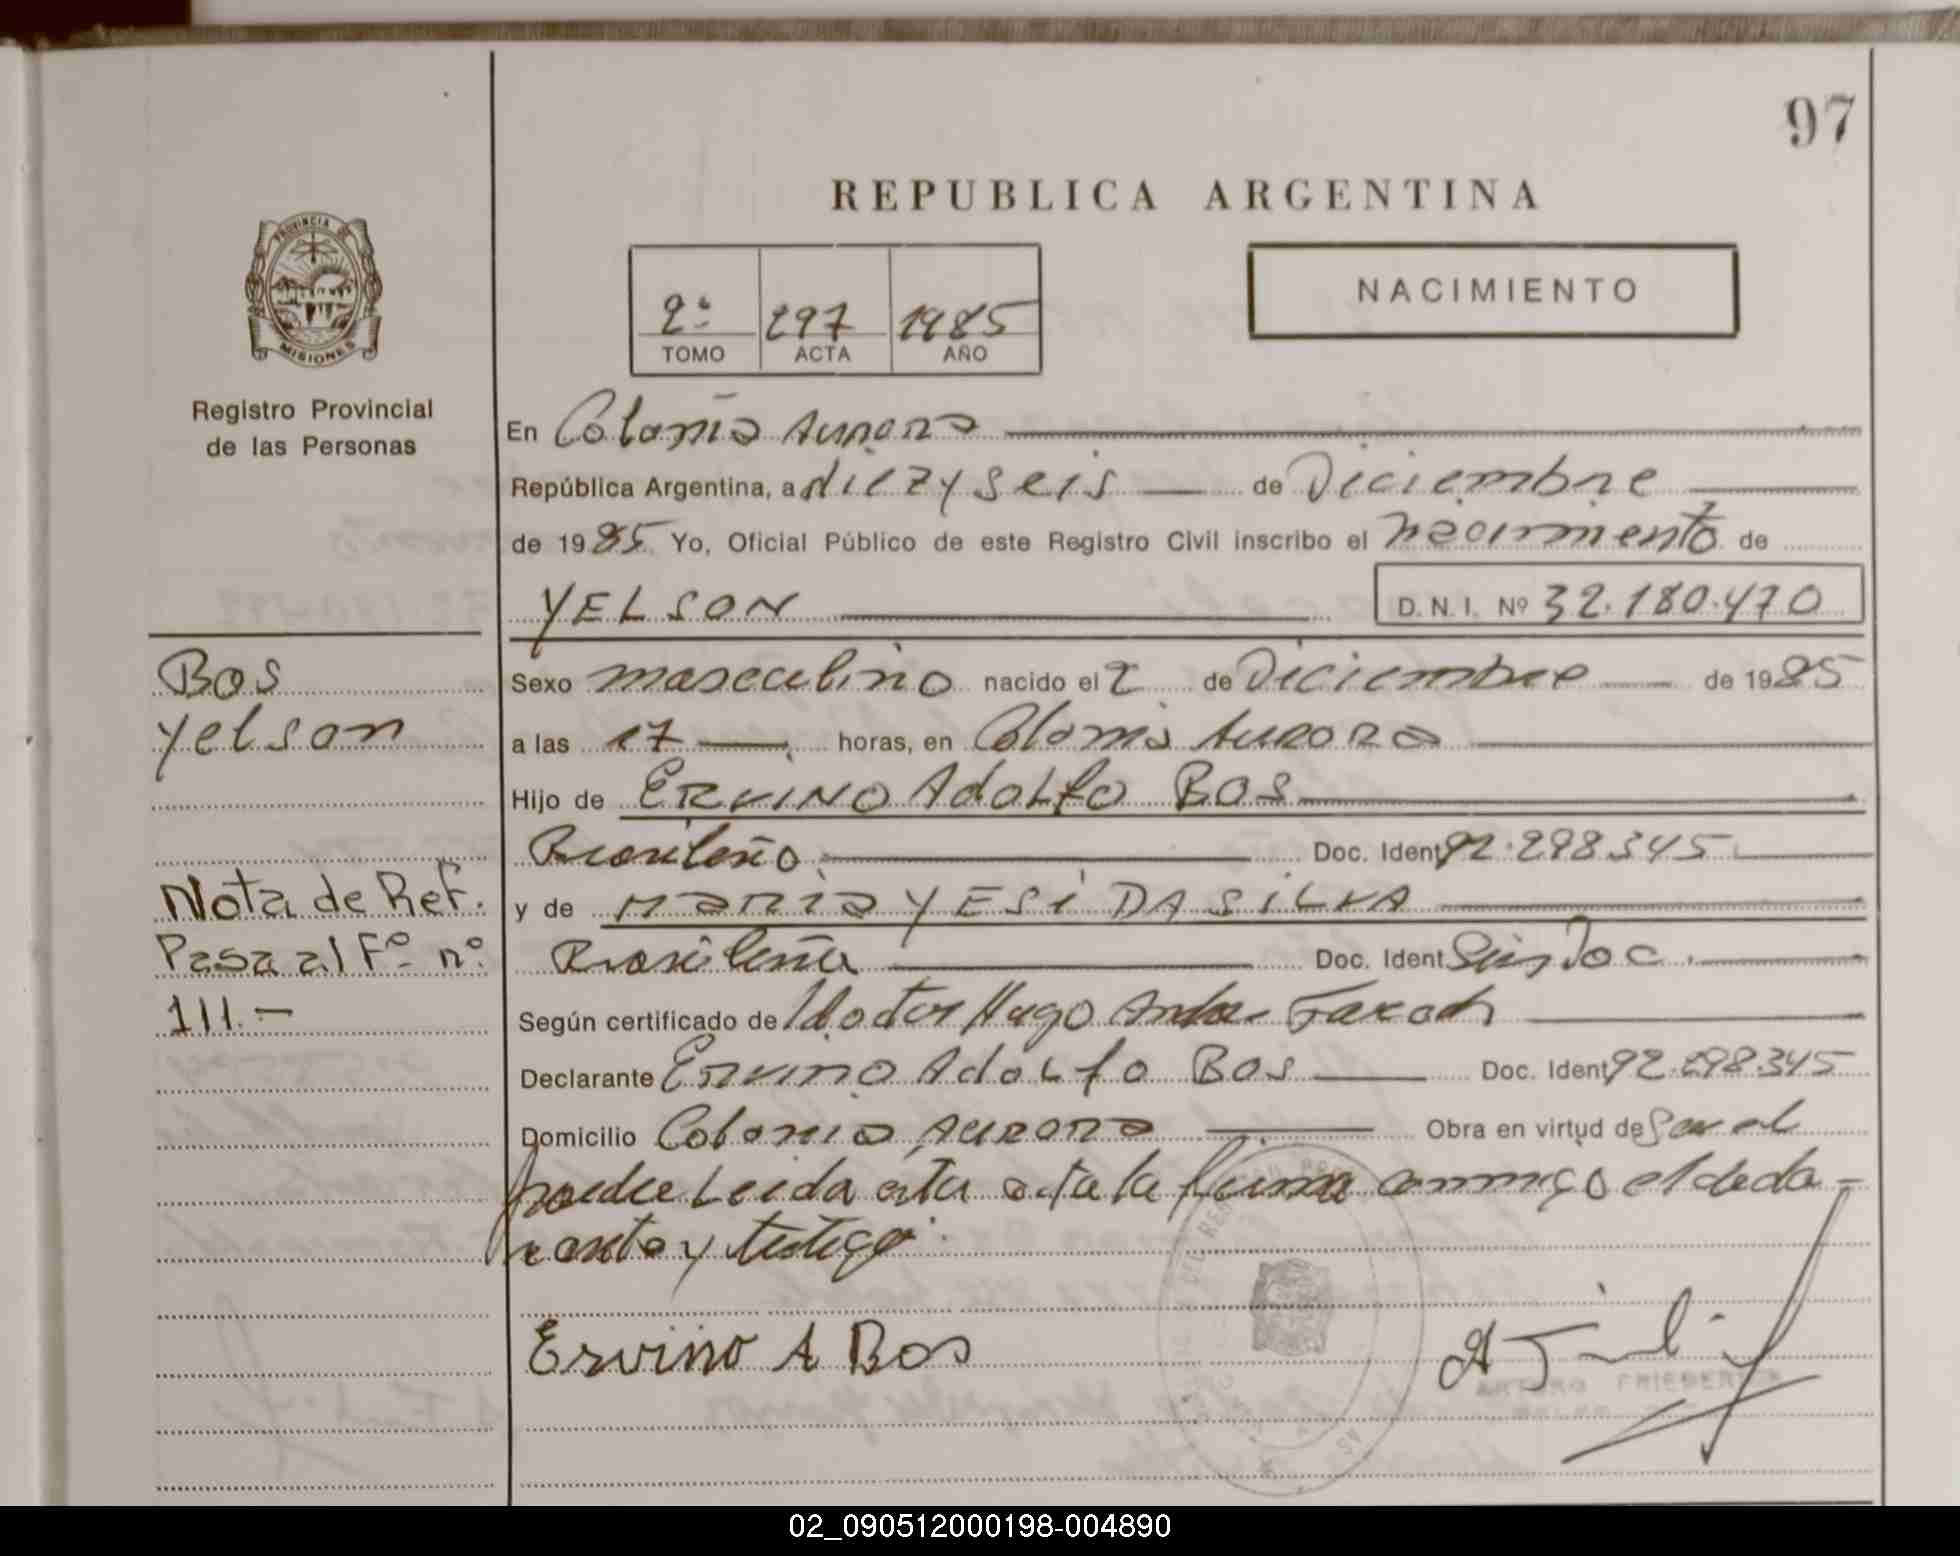 97
REPUBLICA ARGENTINA
PROVINCIA DE
MISIONES
2º 297 1985
TOMO ACTA AÑO
NACIMIENTO
Registro Provincial
de las Personas
En Colonia Aurora
República Argentina, a diezyseis de Diciembre
de 1985 Yo, Oficial Público de este Registro Civil inscribo el nacimiento de
YELSON D.N.I. Nº 32.180.470
Bos
Yelson
Sexo masculino nacido el 2 de Diciembre de 1985
a las 17 horas, en Colonia Aurora
Hijo de ERVINO AdOLfO BOS
Brasileño Doc. Ident 92.298.345
y de MaRia YESi DA SiLVA
Brasileña Doc. Ident Sin Doc.
Nota de Ref.
Pasa al Fº nº
111.-
Según certificado de Doctor Hugo Farah
Declarante Ervino Adolfo Bos Doc. Ident 92.298.345
Domicilio Colonia Aurora Obra en virtud de Ser el
padre Leida esta acta la firma conmigo el decla-
rante y testigo
Ervino A Bos
ARTURO FRIEDERICH
02_090512000198-004890